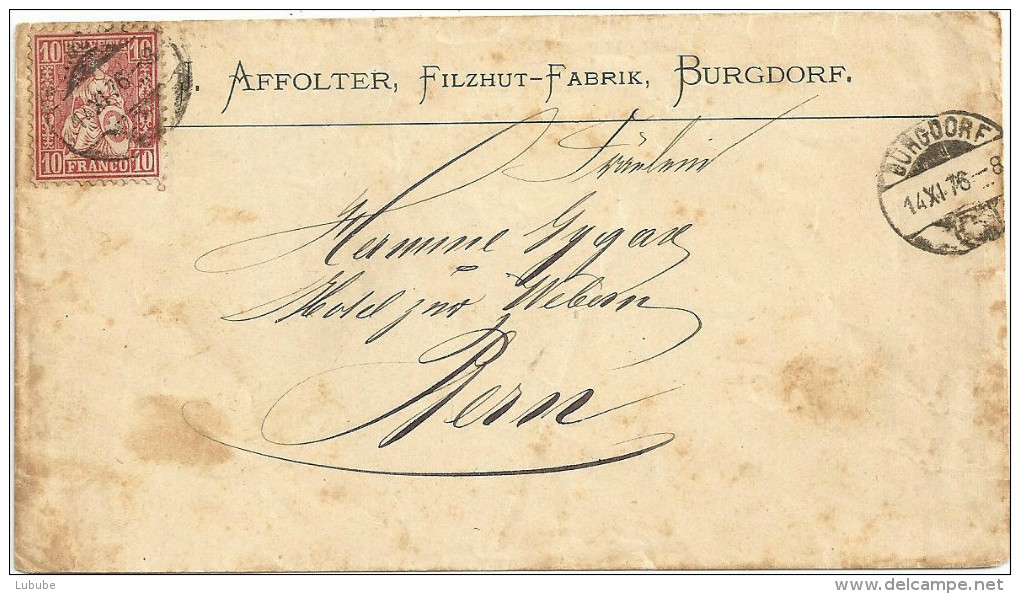 10 HELVETIA 10
10 FRANCO 10
AFFOLTER, FILZHUT-FABRIK, BURGDORF.
BURGDORF
14 XI 76-8
Fräulein
Hermine Gygax
Hotel zur Webern
Bern
Lubube
delcampe.net